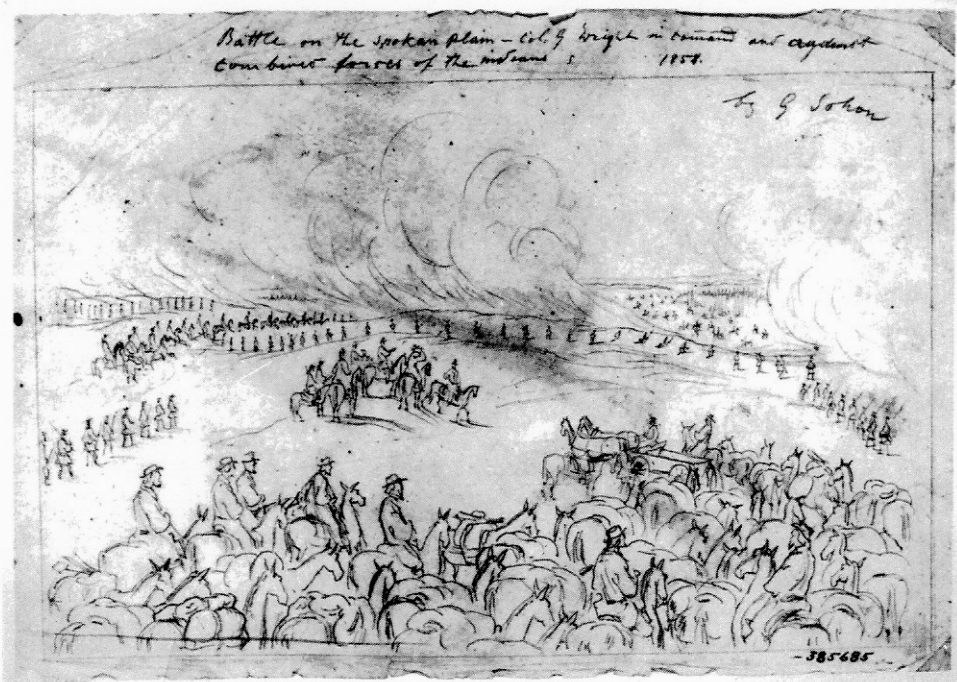 Battle on the Spokan plain - Col. G Wright in comand and against
Combined forces of the indians 1858.
by G Sohon
- 385685